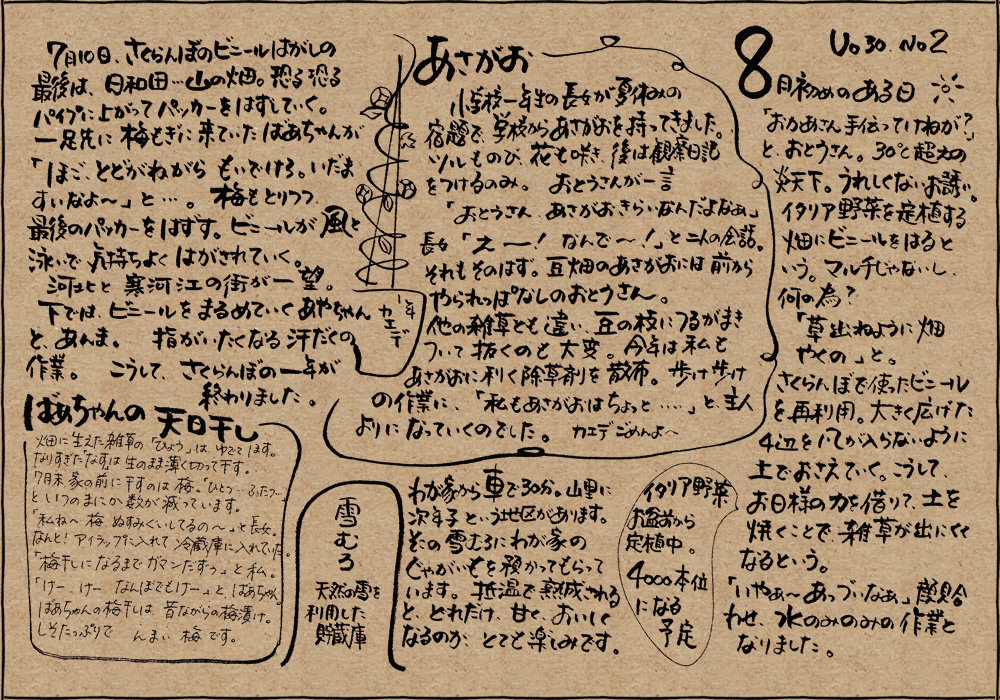 Vo 30. No 2
8月初めのある日
「おかあさん手伝ってけねが?」
と、おとうさん。30℃超えの
炎天下。うれしくないお誘い。
イタリア野菜を定植する
畑にビニールをはると
いう。マルチじゃないし、
何の為?
「草出ねように畑
やくの」と。
さくらんぼで使ったビニール
を再利用。大きく広げた
4辺を風が入らないように
土でおさえていく。こうして、
お日様の力を借りて、土を
焼くことで、雑草が出にくく
なるという。
「いやぁ〜あっづいなぁ」顔見合
わせ、水のみのみの作業と
なりました。
あさがお
小学校一年生の長女が夏休みの
宿題で、学校からあさがおを持ってきました。
ツルものび、花も咲き、後は観察日記
をつけるのみ。 おとうさんが一言
「おとうさん、あさがおきらいなんだよなぁ」
長女「えー!なんで〜!」と二人の会話。
それもそのはず。豆畑のあさがおには前から
やられっぱなしのおとうさん。
他の雑草とも違い、豆の枝につるがまき
ついて抜くのも大変。今年は私も
あさがおに利く除草剤を散布。歩け歩け
の作業に、「私もあさがおはちょっと……」と、主人
よりになっていくのでした。 カエデごめんよ〜
1年
カエデ
イタリア野菜
お盆前から
定植中。
4000本位
になる
予定
わが家から車で30分。山里に
次年子という地区があります。
その雪むろにわが家の
じゃがいもを預かってもらって
います。低温で熟成される
と、どれだけ、甘く、おいしく
なるのか、とても楽しみです。
雪むろ
天然の雪を
利用した
貯蔵庫
7月10日、さくらんぼのビニールはがしの
最後は、日和田…山の畑。恐る恐る
パイプに上がってパッカーをはずしていく。
一足先に梅もぎに来ていたばあちゃんが
「ほご、とどがねがら もいでけろ。いだま
すいなよ〜」と…。 梅もとりつつ、
最後のパッカーをはずす。ビニールが風と
泳いで気持ちよくはがされていく。
河北と寒河江の街が一望。
下では、ビニールをまるめていくあやちゃん
と、あんま。 指がいたくなる汗だくの
作業。 こうして、さくらんぼの一年が
終わりました。
ばあちゃんの天日干し
畑に生えた雑草の「ひょう」は、ゆでて干す。
なりすぎたなすは生のまま薄く切って干す。
7月末、家の前に干すのは梅。「ひとつ…ふたつ…」
といつのまにか数が減っています。
「私ね〜梅ぬすみぐいしてるの〜」と長女。
なんと!アイラップに入れて冷蔵庫に入れていた。
「梅干しになるまでガマンだずっ」と私。
「けー けー なんぼでもけー」と、ばあちゃん。
ばあちゃんの梅干しは 昔ながらの梅漬け。
しそたっぷりで んまい 梅です。